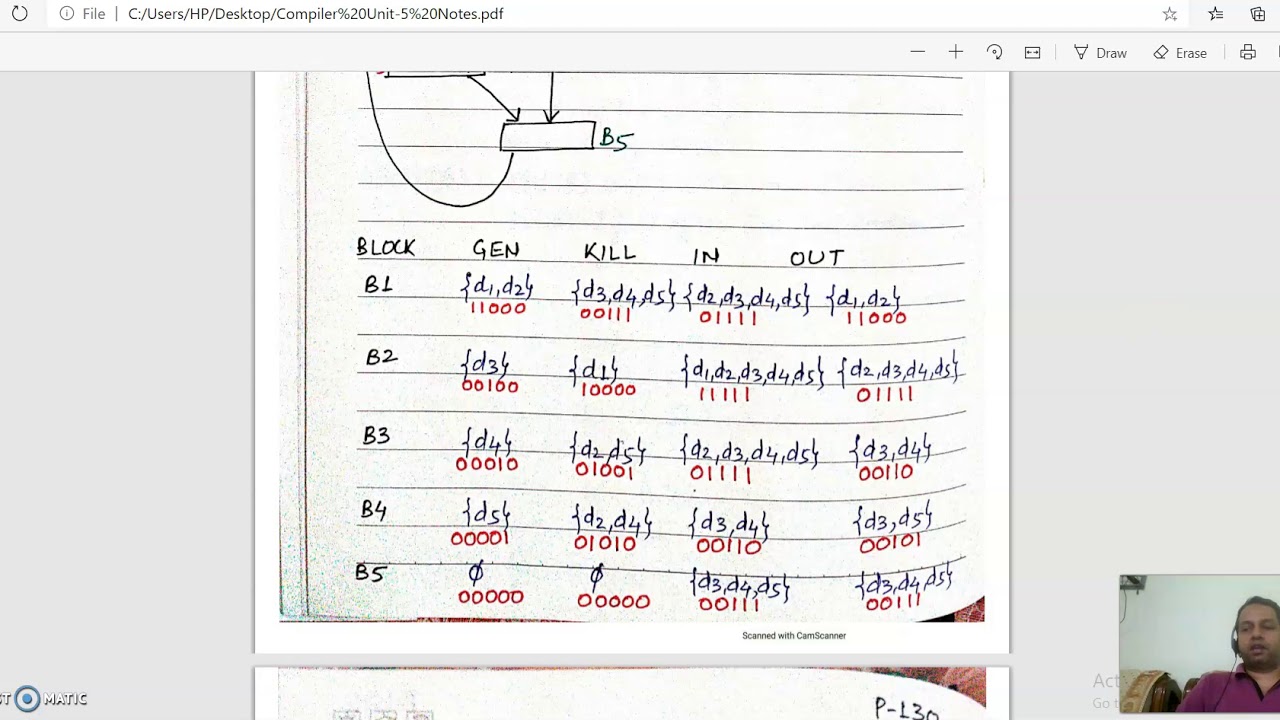 File | C:/Users/HP/Desktop/Compiler%20Unit-5%20Notes.pdf
Draw Erase
B5
BLOCK GEN KILL IN OUT
B1 {d1,d2} {d3,d4,d5} {d2,d3,d4,d5} {d1,d2}
11000 00111 01111 11000
B2 {d3} {d1} {d1,d2,d3,d4,d5} {d2,d3,d4,d5}
00100 10000 11111 01111
B3 {d4} {d2,d5} {d2,d3,d4,d5} {d3,d4}
00010 01001 01111 00110
B4 {d5} {d2,d4} {d3,d4} {d3,d5}
00001 01010 00110 00101
B5 ϕ ϕ {d3,d4,d5} {d3,d4,d5}
00000 00000 00111 00111
Scanned with CamScanner
P-130
MATIC